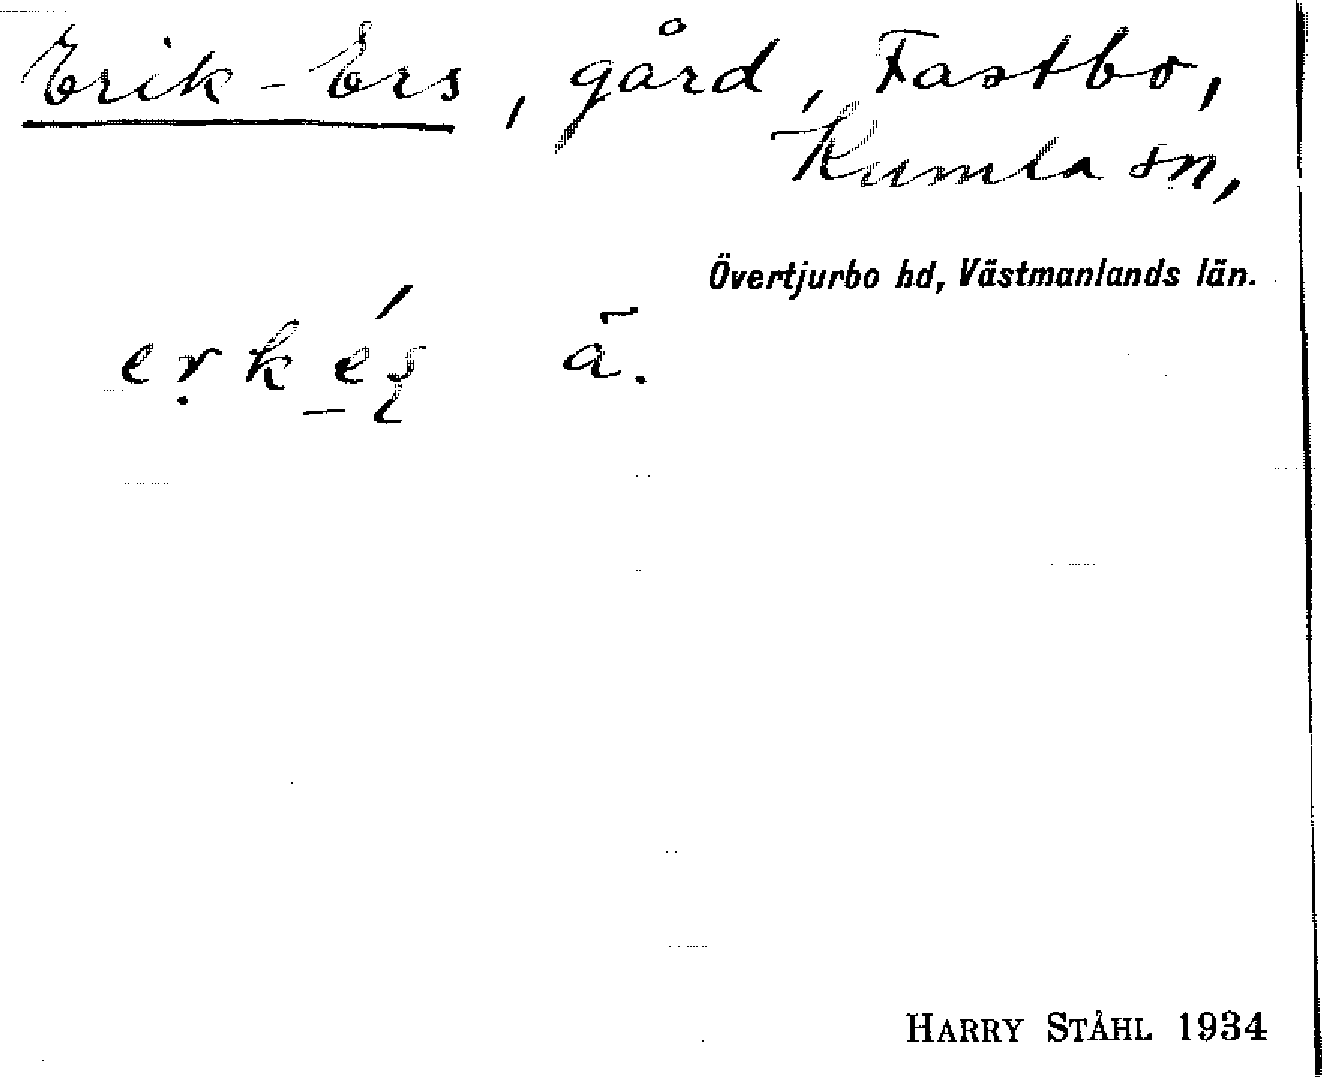 Erik-Ers, gård, Fastbo,
Kumla sn,
Övertjurbo hd, Västmanlands län.
erkés ã.
HARRY STÅHL 1934